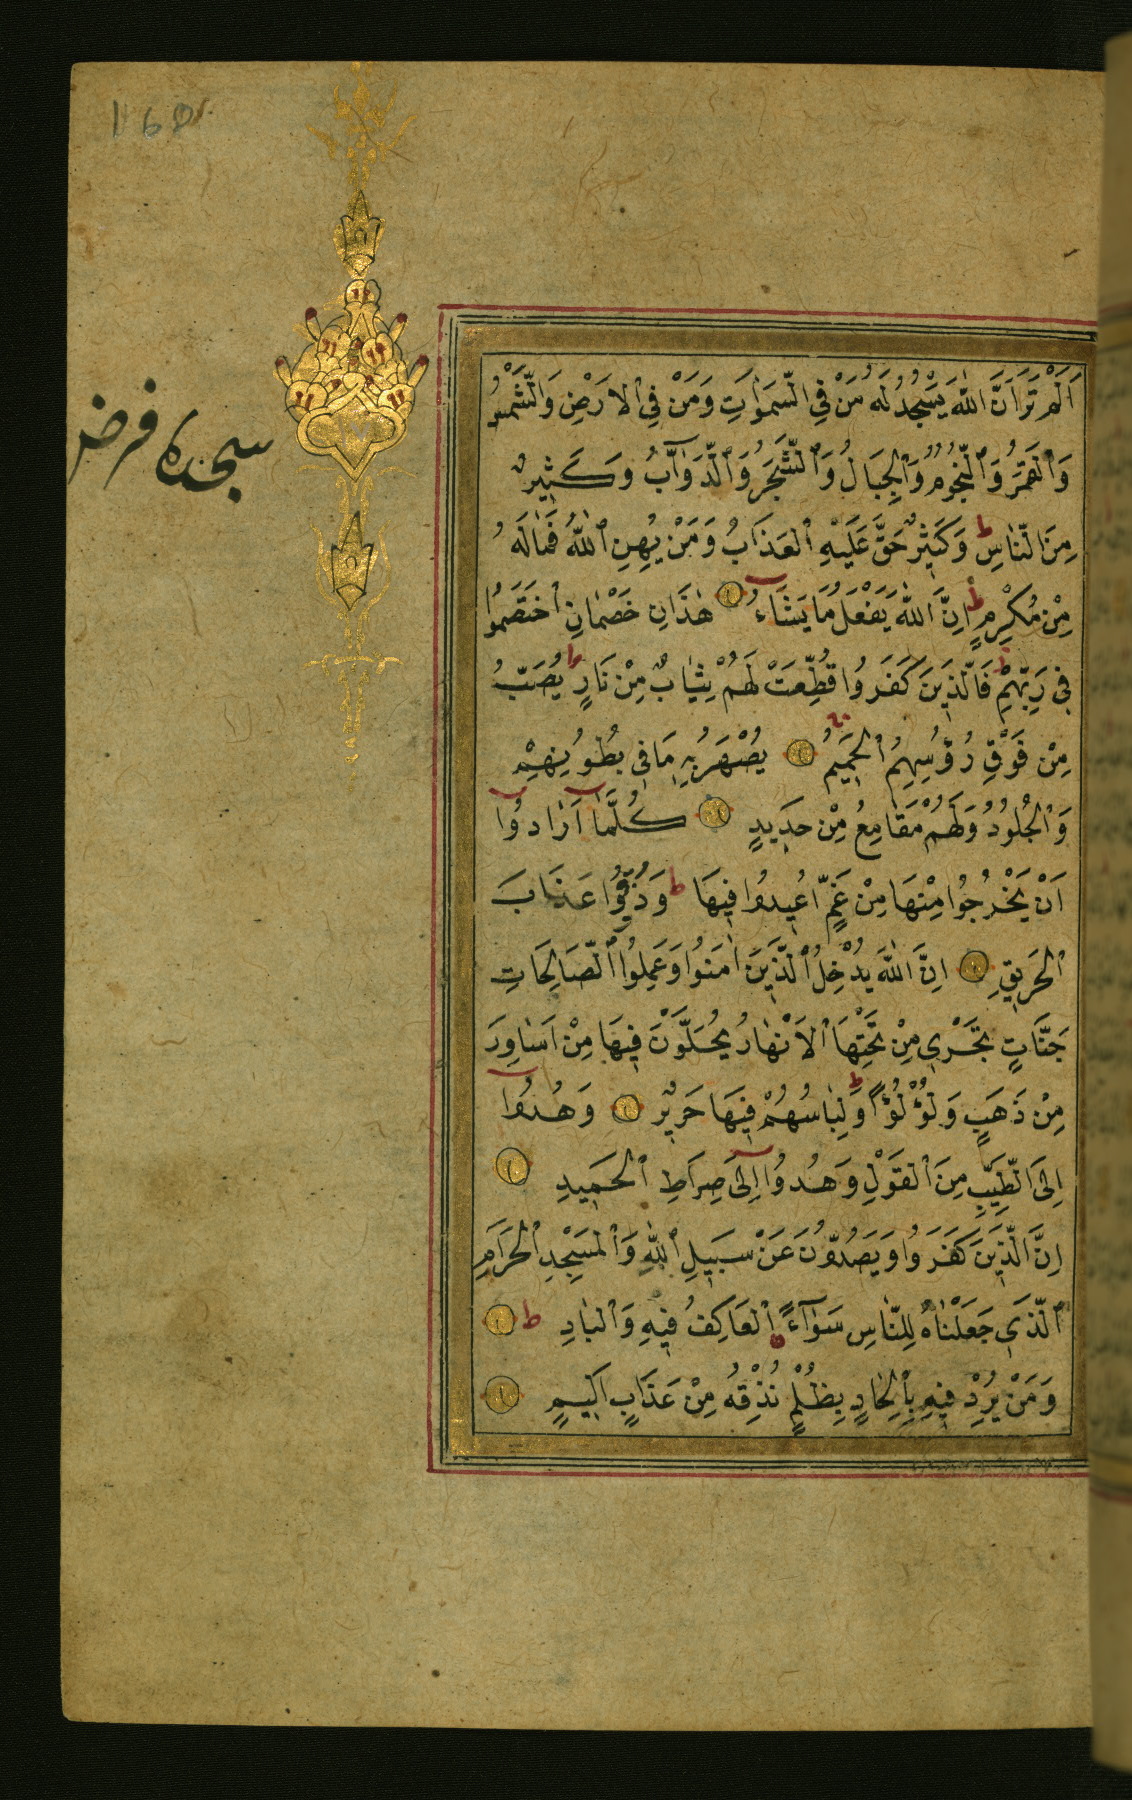 168
سجده فرض
اَلَمْ تَرَ اَنَّ اللّٰهَ يَسْجُدُ لَهُ مَنْ فِي السَّمٰوَاتِ وَمَنْ فِي الْاَرْضِ وَالشَّمْسُ
وَالْقَمَرُ وَالنُّجُومُ وَالْجِبَالُ وَالشَّجَرُ وَالدَّوَآبُّ وَكَثِيرٌ
مِنَ النَّاسِ ط وَكَثِيرٌ حَقَّ عَلَيْهِ الْعَذَابُ وَمَنْ يُهِنِ اللّٰهُ فَمَالَهُ
مِنْ مُكْرِمٍ ط اِنَّ اللّٰهَ يَفْعَلُ مَا يَشَاءُ هٰذَانِ خَصْمَانِ اخْتَصَمُوا
فِي رَبِّهِمْ فَالَّذِينَ كَفَرُوا قُطِّعَتْ لَهُمْ ثِيَابٌ مِنْ نَارٍ ط يُصَبُّ
مِنْ فَوْقِ رُؤُسِهِمُ الْحَمِيمُ يُصْهَرُ بِهِ مَا فِي بُطُونِهِمْ
وَالْجُلُودُ وَلَهُمْ مَقَامِعُ مِنْ حَدِيدٍ كُلَّمَا اَرَادُوا
اَنْ يَخْرُجُوا مِنْهَا مِنْ غَمٍّ اُعِيدُوا فِيهَا ط وَذُوقُوا عَذَابَ
الْحَرِيقِ اِنَّ اللّٰهَ يُدْخِلُ الَّذِينَ اٰمَنُوا وَعَمِلُوا الصَّالِحَاتِ
جَنَّاتٍ تَجْرِي مِنْ تَحْتِهَا الْاَنْهَارُ يُحَلَّوْنَ فِيهَا مِنْ اَسَاوِرَ
مِنْ ذَهَبٍ وَلُؤْلُؤًا ط وَلِبَاسُهُمْ فِيهَا حَرِيرٌ وَهُدُوا
اِلَى الطَّيِّبِ مِنَ الْقَوْلِ وَهُدُوا اِلَى صِرَاطِ الْحَمِيدِ
اِنَّ الَّذِينَ كَفَرُوا وَيَصُدُّونَ عَنْ سَبِيلِ اللّٰهِ وَالْمَسْجِدِ الْحَرَامِ
الَّذِي جَعَلْنَاهُ لِلنَّاسِ سَوَآءً الْعَاكِفُ فِيهِ وَالْبَادِ ط
وَمَنْ يُرِدْ فِيهِ بِاِلْحَادٍ بِظُلْمٍ نُذِقْهُ مِنْ عَذَابٍ اَلِيمٍ